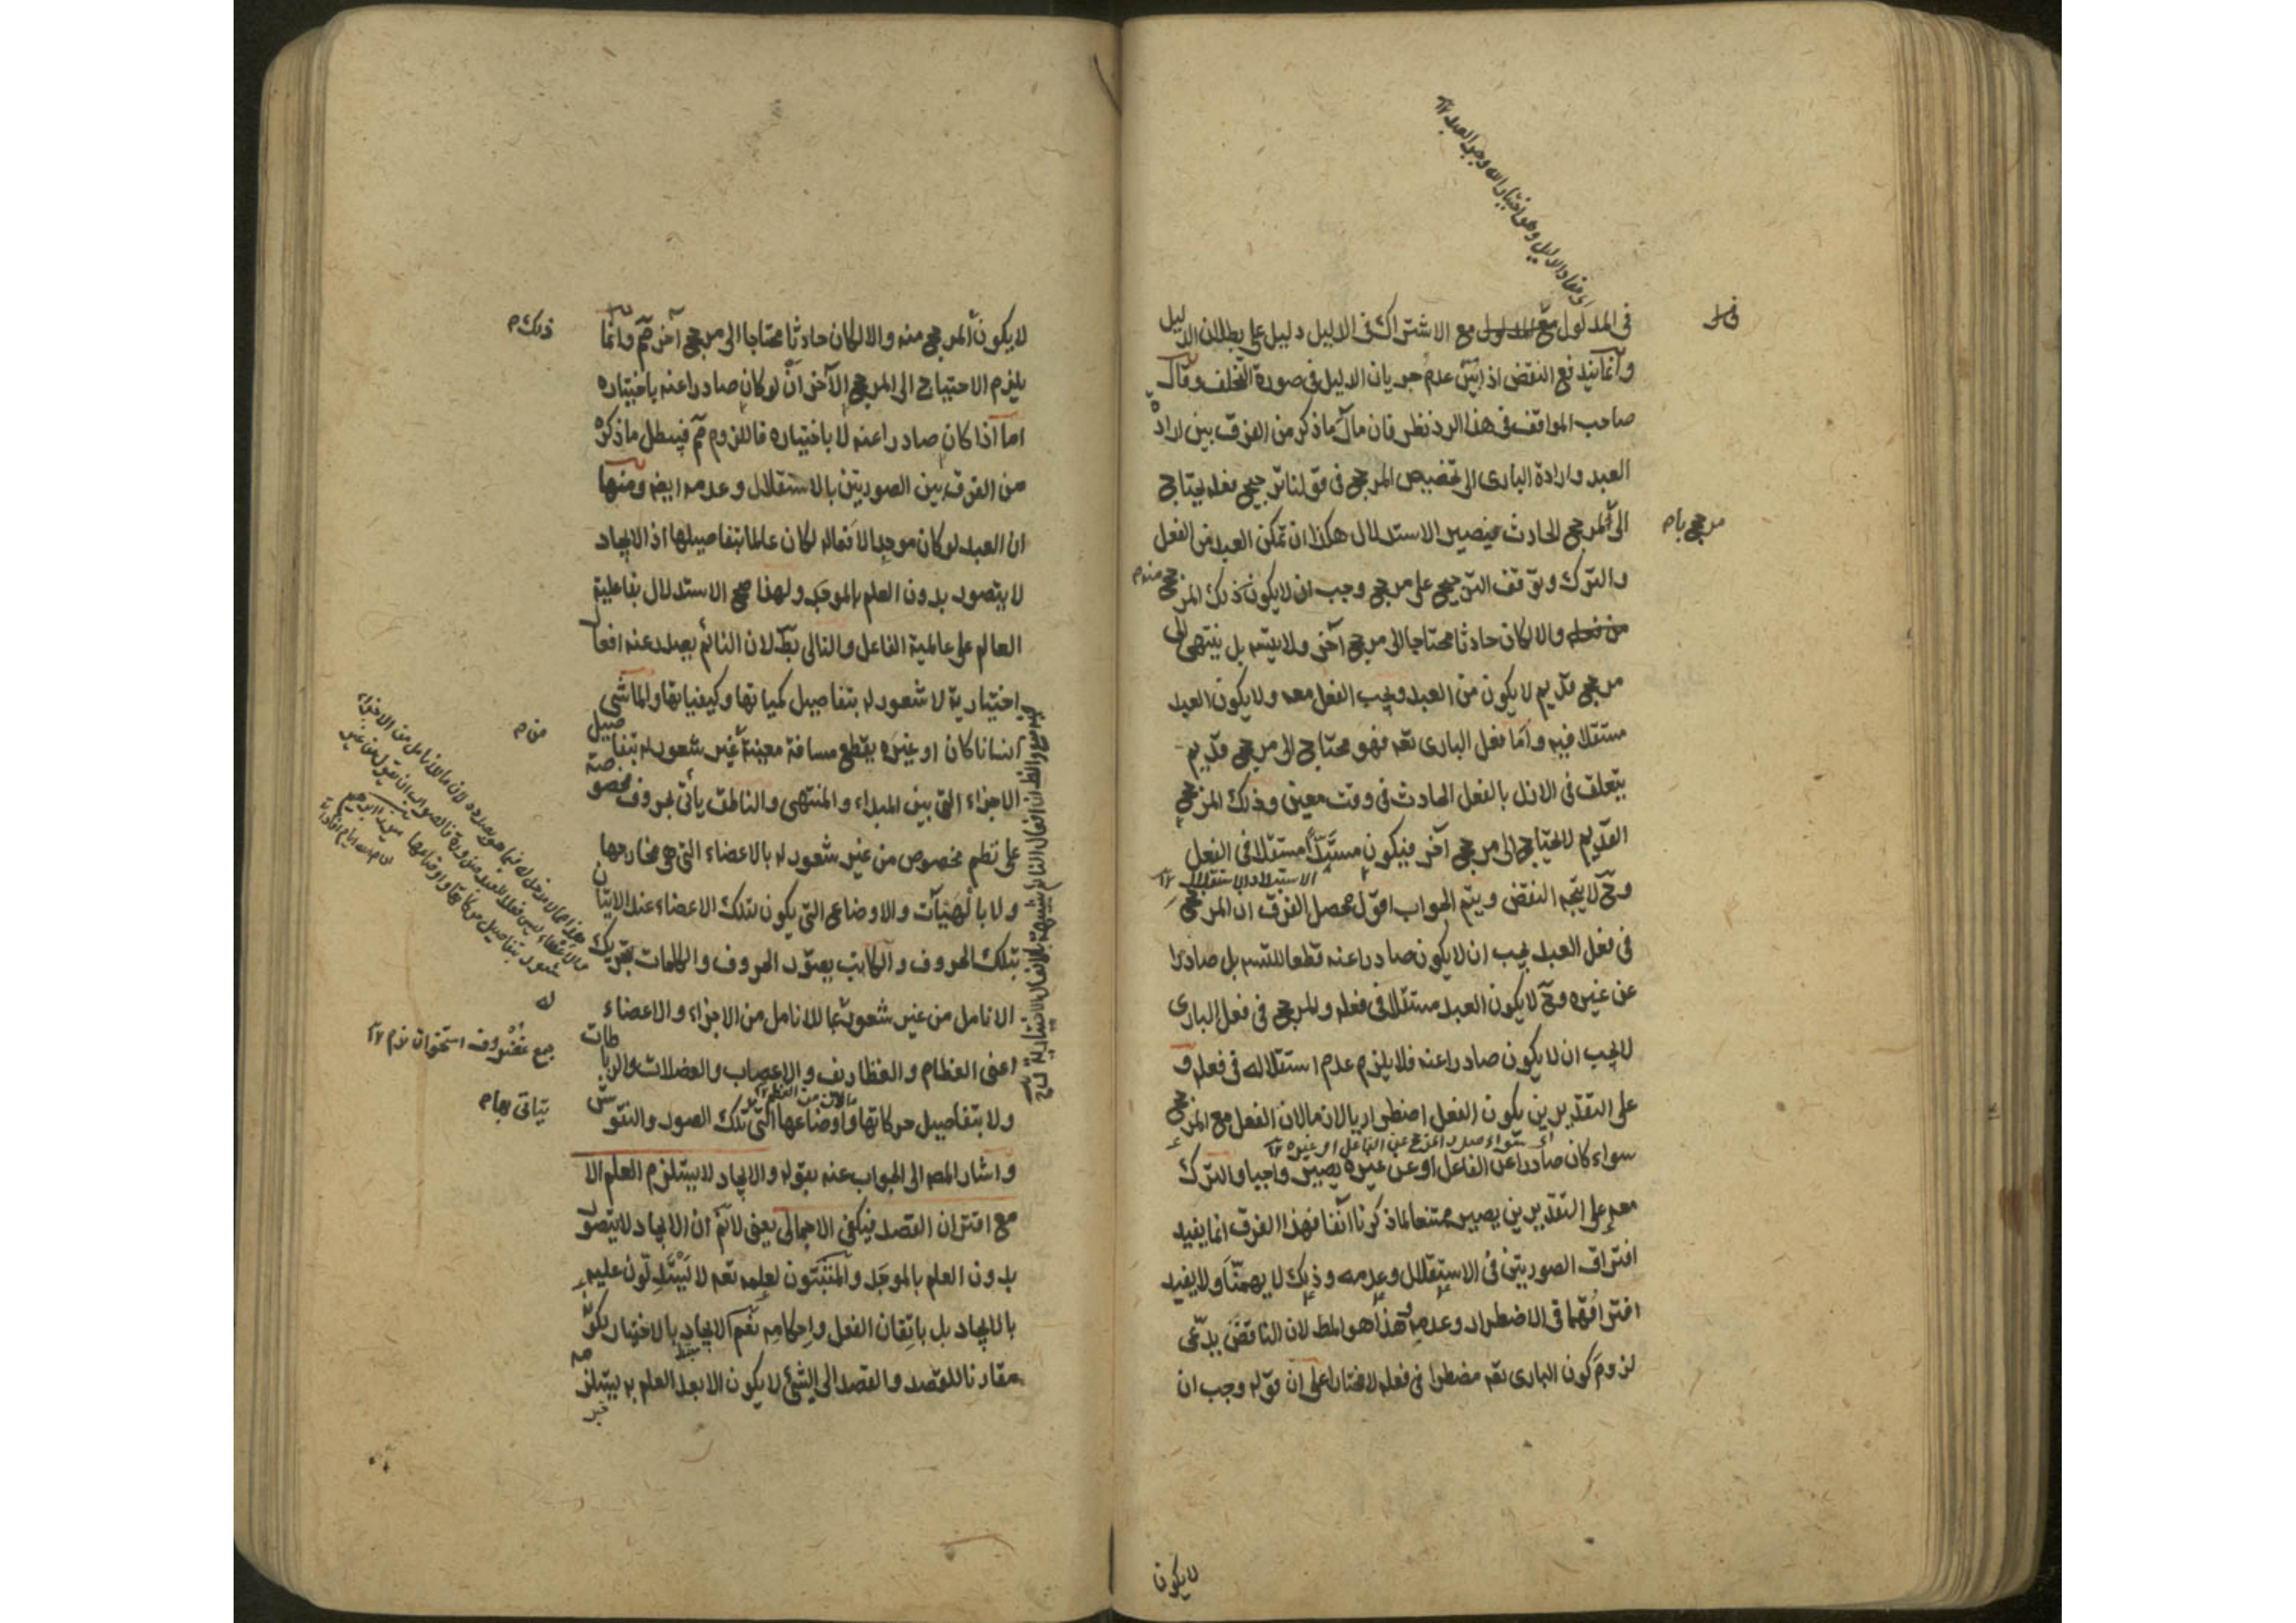 في المدلول مع الاشتراك في الدليل دليل على بطلان الدليل
وانما يندفع النقض اذا بين عدم جريان الدليل في صورة التخلف وقال
صاحب المواقف في هذا الرد نظر فان مآل ما ذكر من الفرق بين ارادة
العبد وارادة البارى الى تخصيص المرجح في قولنا ترجيح فعله يحتاج
الى المرجح الحادث فيصير الاستدلال هكذا ان تمكن العبد من الفعل
مرجح بام
والترك وتوقف الترجيح على مرجح وجب ان لا يكون ذلك المرجح منه م
والا لكان حادثا محتاجا الى مرجح آخر ولا يتسه بل ينتهى الى
مرجح قديم لا يكون من العبد ويجب الفعل معه ولا يكون العبد
مستقلا فيه واما فعل البارى تعه فهو محتاج الى مرجح قديم
يتعلق في الازل بالفعل الحادث في وقت معين وذلك المرجح
القديم لا يحتاج الى مرجح آخر فيكون مستبدا مستقلا في الفعل
الاستبداد الاستقلال ١٢
وح لا يتجه النقض ويتم الجواب اقول محصل الفرق ان المرجح
في فعل العبد يجب ان لا يكون صادرا عنه قطعا للتسه بل صادرا
عن غيره وح لا يكون العبد مستقلا في فعله والمرجح في فعل البارى
لا يجب ان لا يكون صادرا عنه فلا يلزم عدم استقلاله في فعله و
على التقديرين يكون الفعل اضطراريا لازما لان الفعل مع المرجح
اى سواء صدر المرجح عن الفاعل او غيره ١٢
سواء كان صادرا عن الفاعل او عن غيره يصير واجبا والترك
معه على التقديرين يصير ممتنعا لما ذكرنا آنفا فهذا الفرق انما يفيد
افتراق الصورتين في الاستقلال وعدمه وذلك لا يهمنا ولا يفيد
افتراقهما في الاضطرار وعدمه هذا هو المط لان الناقض يدعى
لزوم كون البارى تعه مضطرا في فعله لا مختارا على ان قوله وجب ان
لا يكون
لا يكون المرجح منه والا لكان حادثا محتاجا الى مرجح آخر مم وانما
ذلك م
يلزم الاحتياج الى المرجح الآخر ان لو كان صادرا عنه باختياره
اما اذا كان صادرا عنه لا باختياره فاللزوم مم فيبطل ما ذكره
من الفرق بين الصورتين بالاستقلال وعدمه ايضه ومنها
ان العبد لو كان موجدا لافعاله لكان عالما بتفاصيلها اذ الايجاد
لا يتصور بدون العلم بالموجد ولهذا صح الاستدلال بفاعلية
العالم على عالمية الفاعل والتالى بط لان النائم يصدر عنه افعال
اختيارية لا شعور له بتفاصيل كمياتها وكيفياتها والماشى
انسانا كان او غيره يقطع مسافة معينة غير شعور له بتفاصيل
من م
الاجزاء التى بين المبداء والمنتهى والناطق يأتى بحروف مخصوصة
على نظم مخصوص من غير شعور له بالاعضاء التى هى مخارجها
ولا بالهيآت والاوضاع التى يكون لتلك الاعضاء عند الاتيان
بتلك الحروف والكاتب يصور الحروف والكلمات بتحريك
الانامل من غير شعور بما للانامل من الاجزاء والاعضاء
له
اعنى العظام والغظاريف والاعصاب والعضلات والرباطات
جمع غضروف استخوان نرم ١٢
ولا بتفاصيل حركاتها واوضاعها التى تلك الصور والنقوش
يتاتى بها م
واشار المصه الى الجواب عنه بقوله والايجاد لا يستلزم العلم الا
مع اقتران القصد فيكفى الاجمالى يعنى لا نم ان الايجاد لا يتصور
بدون العلم بالموجد والمثبتون لعلمه تعه لا يستدلون عليه
بالايجاد بل باتقان الفعل واحكامه نعم الايجاد بالاختيار لكونه
مقارنا للقصد والقصد الى الشئ لا يكون الا بعد العلم به يستلزمه